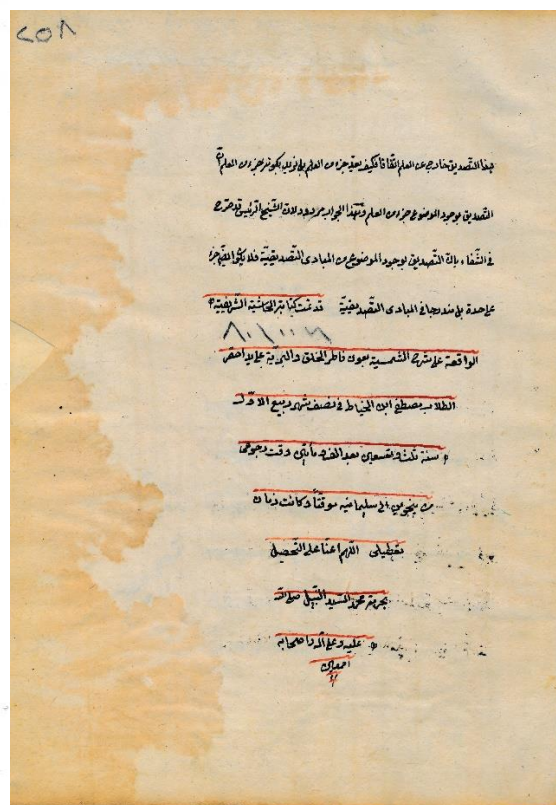 ٢٥٨
بهذا التصديق خارج عن العلم اتفاقا فكيف يعد جزء من العلم بل نريد بكونه جزء من العلم ان
التصديق بوجود الموضوع جزء من العلم وهذا الجواب مردود لان الشيخ الرئيس قد صرح
في الشفاء بان التصديق بوجود الموضوع من المبادى التصديقية فلا يكون جزء
على حدة بل مندرجا في المبادى التصديقية قد تمت كتابة الحاشية الشريفية
الواقعة على شرح الشمسية بعون فاطر الخلق والبرية على يد احقر
الطلاب مصطفى ابن الخياط في نصف شهر ربيع الاول
سنة ثلث وتسعين بعد الف ومأتين وقت رجوعى
من الى سليمانيه موقتا وكانت زمان
تعطيلى اللهم اعنا على التحصيل
بحرمة محمد السيد النبيل صلى الله
عليه وعلى آله واصحابه
اجمعين